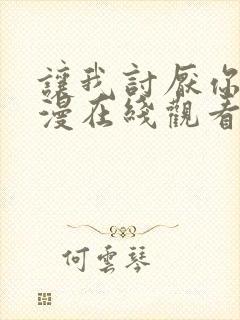 讓我討厭你
漫在綫觀看
何雲琴